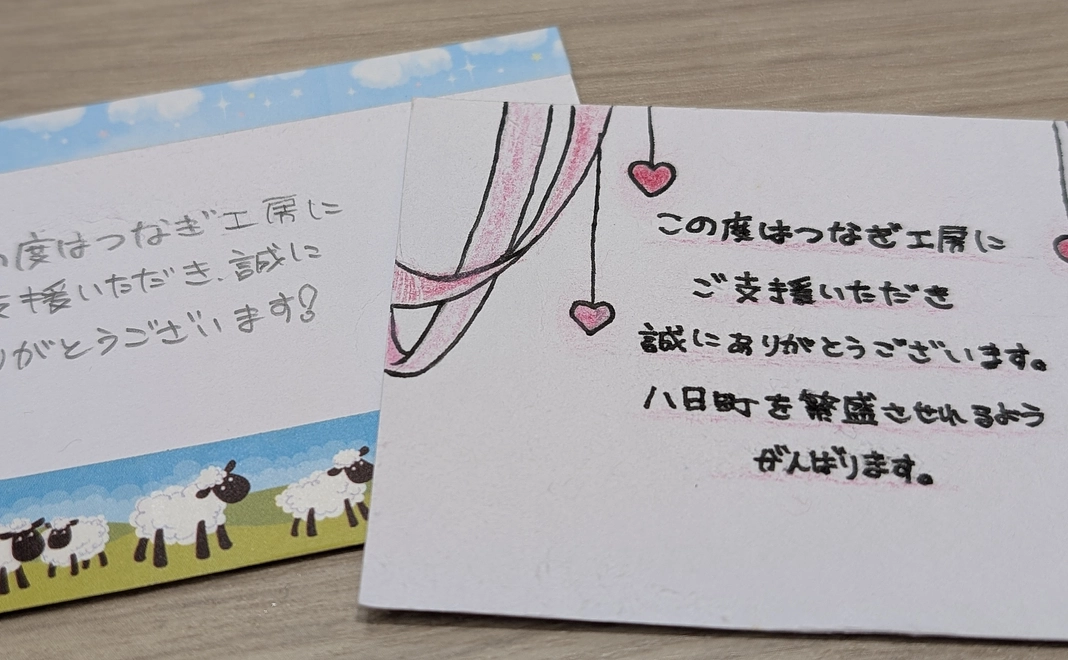 の度はつなぎ工房に
支援いただき、誠に
りがとうございます!
この度はつなぎ工房に
ご支援いただき
誠にありがとうございます。
八日町を繁盛させれるよう
がんばります。